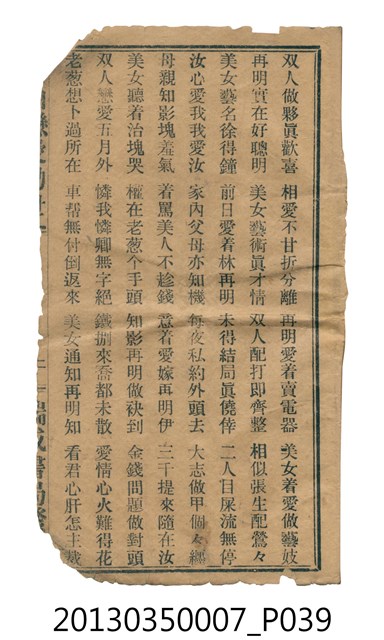 双人做夥眞歡喜 相愛不甘折分離 再明愛着賣電器 美女着愛做藝妓
再明實在好聰明 美女藝術眞才情 双人配打即齊整 相似張生配鶯々
美女藝名徐得鐘 前日愛着林再明 未得結局眞僥倖 二人目屎流無停
汝心愛我我愛汝 家內父母亦知機 每夜私約外頭去 大志做甲個々
母親知影塊羞氣 着罵美人不趁錢 意着愛嫁再明伊 三千提來隨在汝
美女聽着治塊哭 權在老葱个手頭 知影再明做袂到 金錢問題做對頭
双人戀愛五月外 憐我憐卿無字絕 鐵捌來喬都未散 愛情心火難得花
老葱想卜過所在 車帮無付倒返來 美女通知再明知 看君心肝怎主裁
20130350007_P039